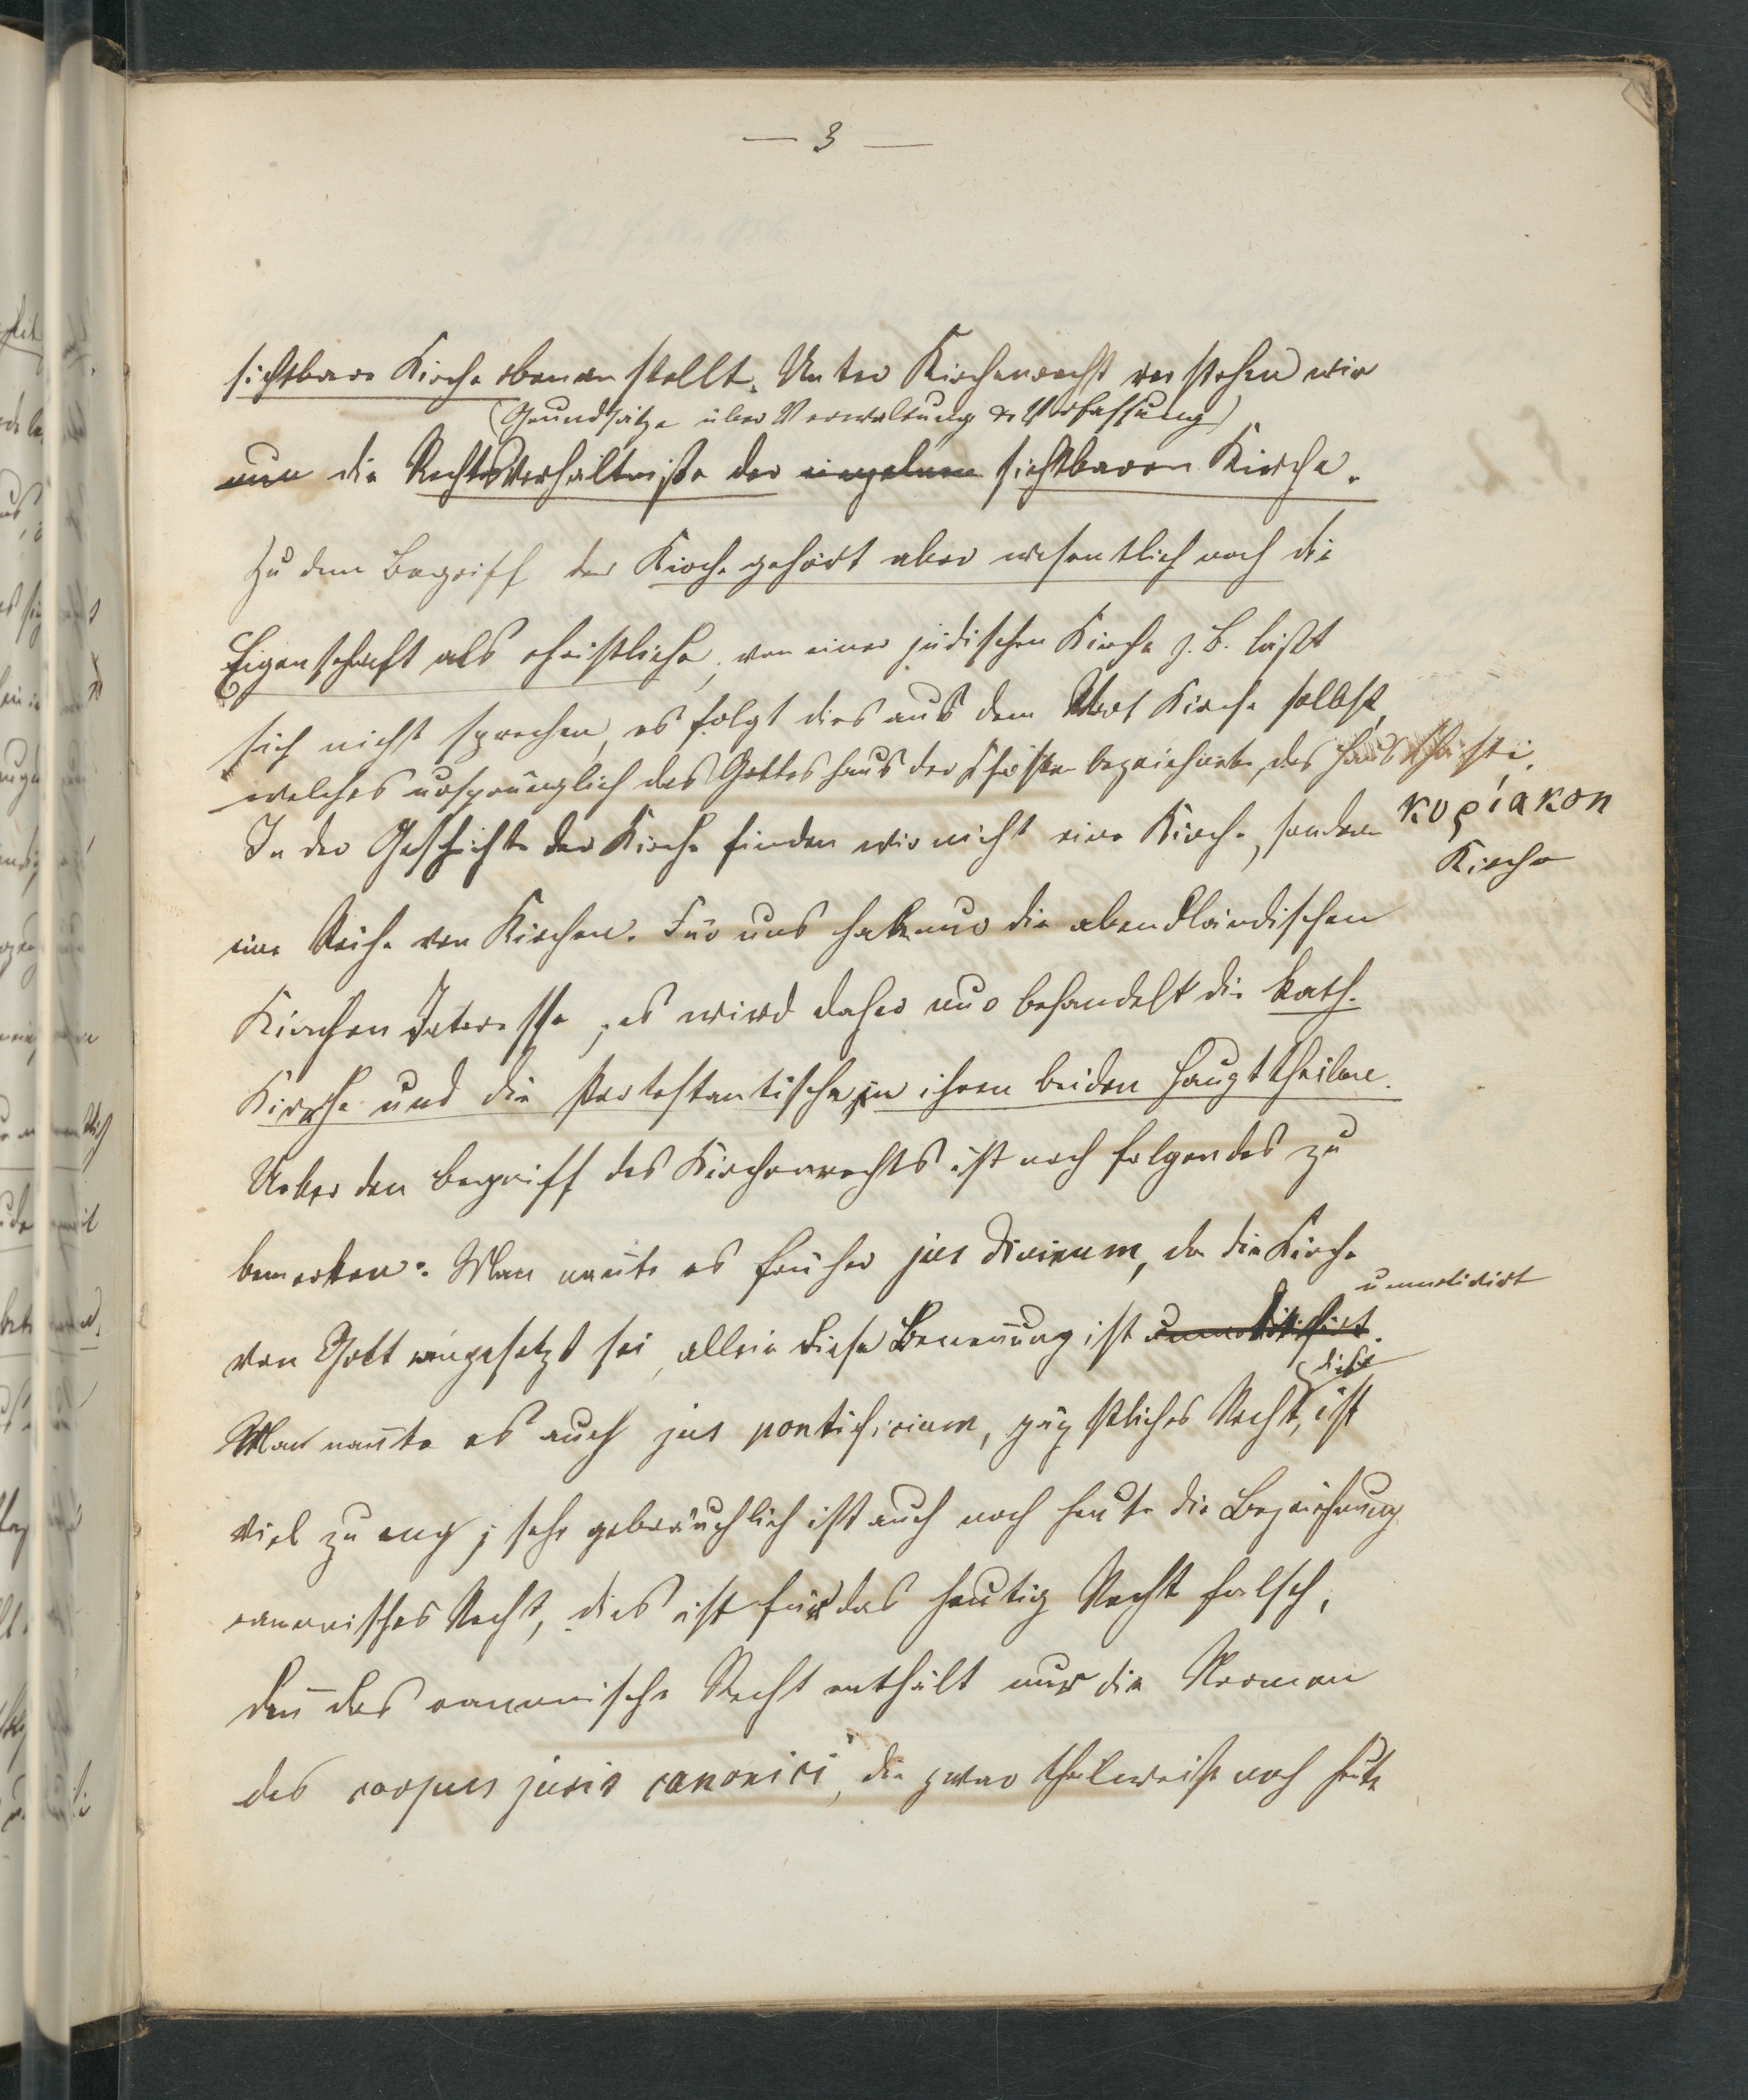 — 3 —
sichtbare Kirche obenan stellt. Unter Kirchenrecht verstehen wir
(Grundsätze über Verwaltung & Verfassung)
nun die Rechtsverhältniße der einzelnen sichtbaren Kirche.
Zu dem Begriff der Kirche gehört aber wesentlich noch die
Eigenschaft als christliche, von einer jüdischen Kirche z. B. läßt
sich nicht sprechen, es folgt dies aus dem Wort Kirche selbst,
welches ursprünglich das Gotteshaus der Christen bezeichnete, das Haus Christi.
κυρίακον
In der Geschichte der Kirche finden wir nicht eine Kirche, sondern
Kirche
eine Reihe von Kirchen. Für uns haben nur die abendländischen
Kirchen Interesse, es wird daher nur behandelt die kath.
Kirche und die Protestantische, in ihren beiden Haupttheilen.
Ueber den Begriff des Kirchenrechts ist noch folgendes zu
bemerken: Man nan̄te es früher jus divinum, da die Kirche
unmotivirt
von Gott eingesetzt sei, allein diese Benen̄ung ist
dies
Man nan̄te es auch jus pontificium, päpstliches Recht, ist
viel zu eng; sehr gebräuchlich ist auch noch heute die Bezeichnung
canonisches Recht, dies ist für das heutig Recht falsch,
den̄ das canonische Recht enthält nur die Normen
des corpus juris canonici, die zwar theilweise noch heute